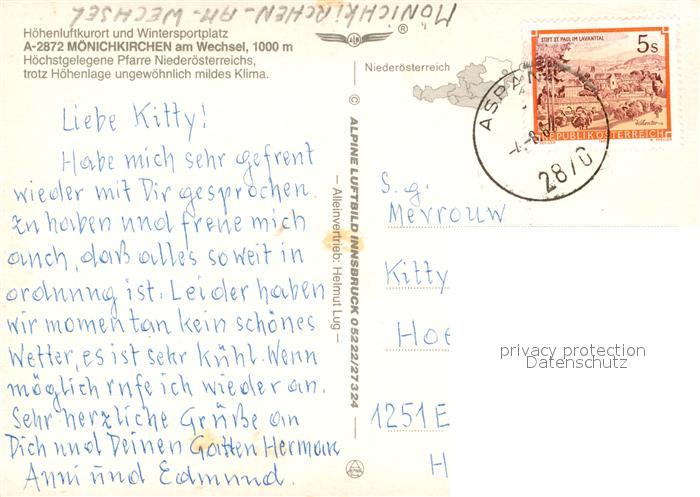 MÖNICHKIRCHEN-AM-WECHSEL
Höhenluftkurort und Wintersportplatz
A-2872 MÖNICHKIRCHEN am Wechsel, 1000 m
Höchstgelegene Pfarre Niederösterreichs,
trotz Höhenlage ungewöhnlich mildes Klima.
®
Niederösterreich
STIFT ST. PAUL IM LAVANTTAL
5s
REPUBLIK ÖSTERREICH
ASPANG
2870
Liebe Kitty!
Habe mich sehr gefreut
wieder mit Dir gesprochen
zu haben und freue mich
auch, daß alles soweit in
ordnung ist. Leider haben
wir momentan kein schönes
Wetter, es ist sehr kühl. Wenn
möglich rufe ich wieder an.
Sehr herzliche Grüße an
Dich und Deinen Gatten Herman
Anni und Edmund.
© ALPINE LUFTBILD INNSBRUCK 05222/27324
— Alleinvertrieb: Helmut Lug —
S.g.
Mevrouw
Kitty
Hoe
1251 E
H
privacy protection
Datenschutz